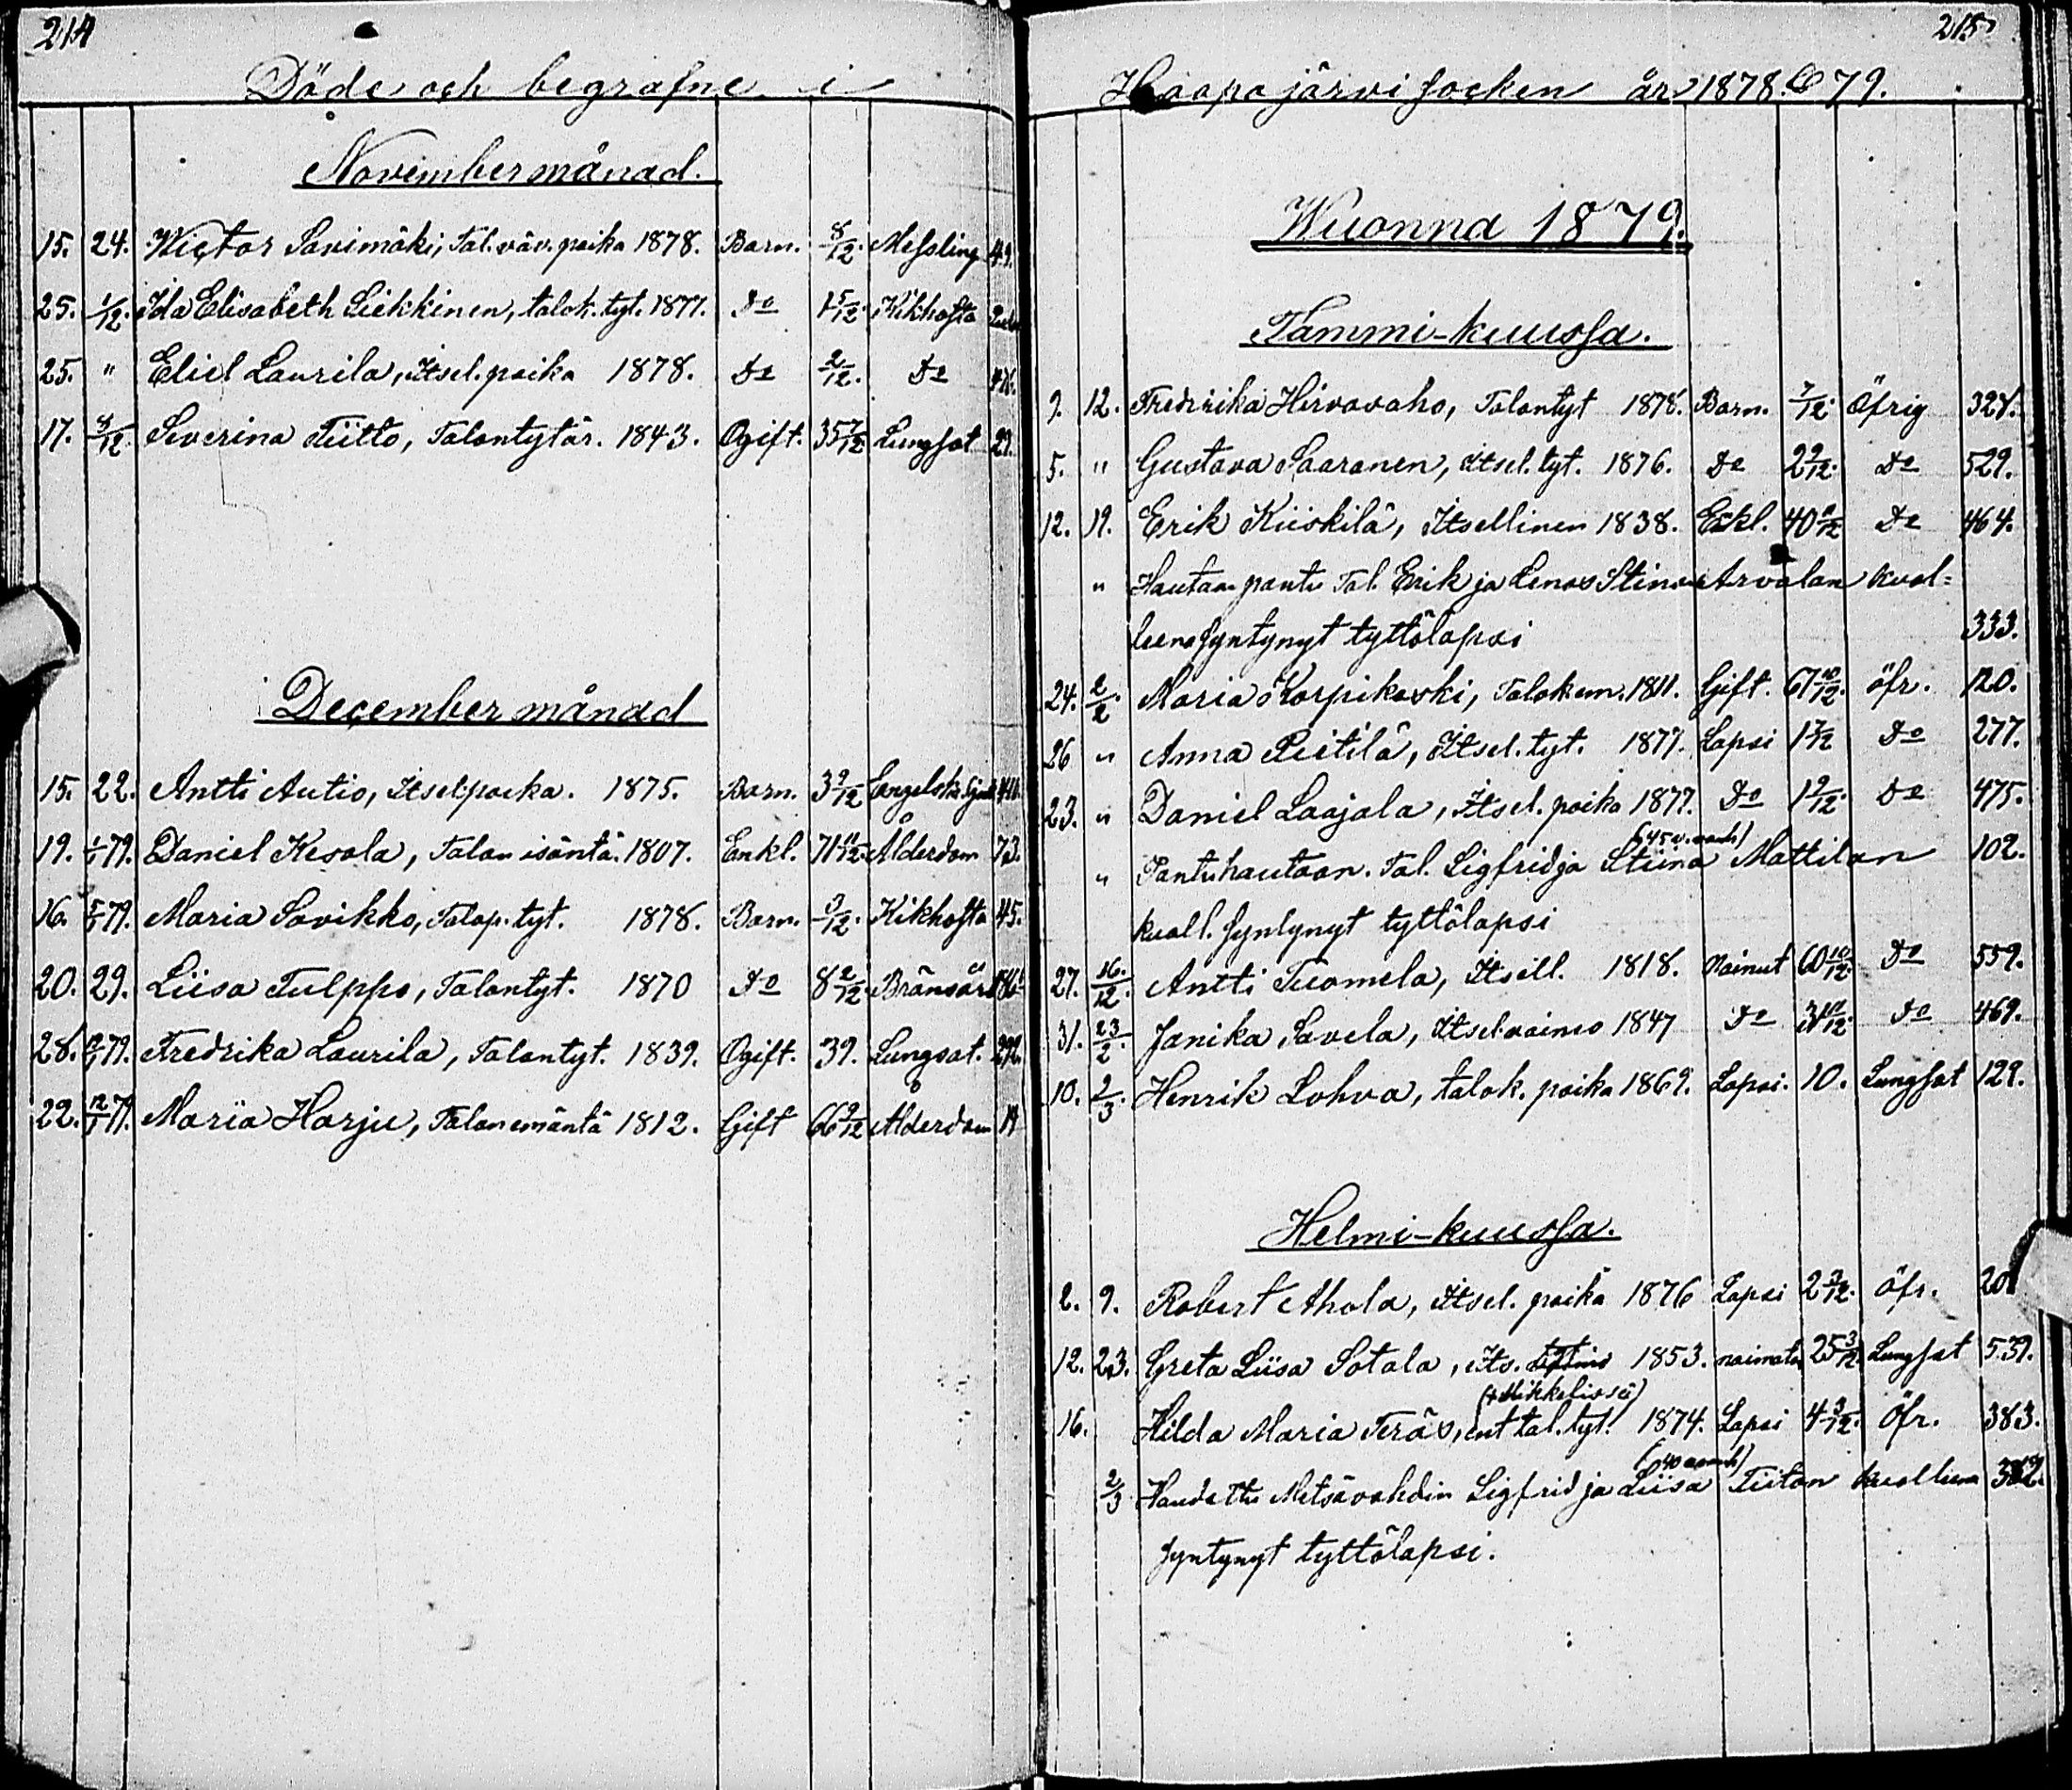 214
Döde och begrafne i
November månad.
15. 24. Wictor Savimäki, Tal. väv. poika 1878. Barn. 8/12. Messling 49.
25. 1/12. Ida Elisabeth Liekkinen, talok. tyt. 1877. Do 1 5/12. Kikhosta
25. " Eliel Laurila, Itsel. poika 1878. Do 2/12. Do
17. 8/12. Severina Tiitto, Talontytär. 1843. Ogift. 35 7/12 Lungsot 29.
December månad
15. 22. Antti Autio, Itsel. poika. 1875. Barn. 3 9/12 Engelska
19. 1/1 79. Daniel Kesola, Talon isäntä. 1807. Enkl. 71 11/12. Ålderdom 73.
16. 5/1 79. Maria Savikko, Talop. tyt. 1878. Barn. 9/12. Kikhosta 45.
20. 29. Liisa Tulppo, Talontyt. 1870 Do 8 2/12 Brännsår
28. 79. Fredrika Laurila, Talontyt. 1839. Ogift. 39. Lungsot. 292.
22. 12/1 79. Maria Harju, Talon emäntä 1812. Gift 66 9/12 Ålderdom
215
Haapajärvi socken år 1878. & 79.
Wuonna 1879.
Tammi-kuussa.
9. 12. Fredrika Hirvavaho, Talontyt 1878. Barn. 7/12. Öfrig 328.
5. " Gustava Saaranen, itsel. tyt. 1876. Do 2 9/12. Do 529.
12. 19. Erik Kiiskilä, Itsellinen 1838. Enkl. 40 /12 Do 464.
" Hautaan pantu Tal. Erik ja Lena Stina Arvolan kuol=
leena syntynyt tyttölapsi 333.
24. 2/2. Maria Korpikoski, Talokem. 1811. Gift. 67 10/12. öfr. 120.
26 " Anna Peitilä, Itsel. tyt. 1877. Lapsi 1 7/12 Do 277.
23. " Daniel Laajala, Itsel. poika 1877. Do 1 9/12. Do 475.
(45 v. vanh)
" Pantu hautaan. Tal. Sigfrid ja Stiina Mattilan 102.
kuoll. syntynyt tyttölapsi
27. 16/12. Antti Tuomela, Itsell. 1818. Nainut 60 10/12. Do 559.
31. 23/2. Janika Savela, Itsel. vaimo 1847 Do 31 /12. Do 469.
10. 2/3. Henrik Lohva, talok. poika 1869. Lapsi. 10. Lungsot 129.
Helmi-kuussa.
2. 9. Robert Ahola, Itsel. poika 1876 Lapsi 2 3/12. öfr. 20
12. 23. Greta Liisa Sotala, its. 1853. naimaton 25 3/12. Lungsot 539.
(+ Mikkelissä)
16. Hilda Maria Teräs, ent tal. tyt. 1874. Lapsi 4 3/12. Öfr. 383.
(40 v vanh)
2/3 Haudattu Metsävahdin Sigfrid ja Liisa Tiiton kuolleena
syntynyt tyttölapsi.